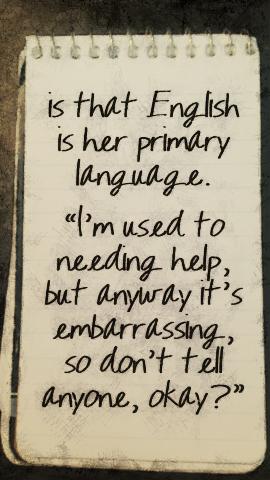 is that English
is her primary
language.
“I’m used to
needing help,
but anyway it’s
embarrassing,
so don’t tell
anyone, okay?”